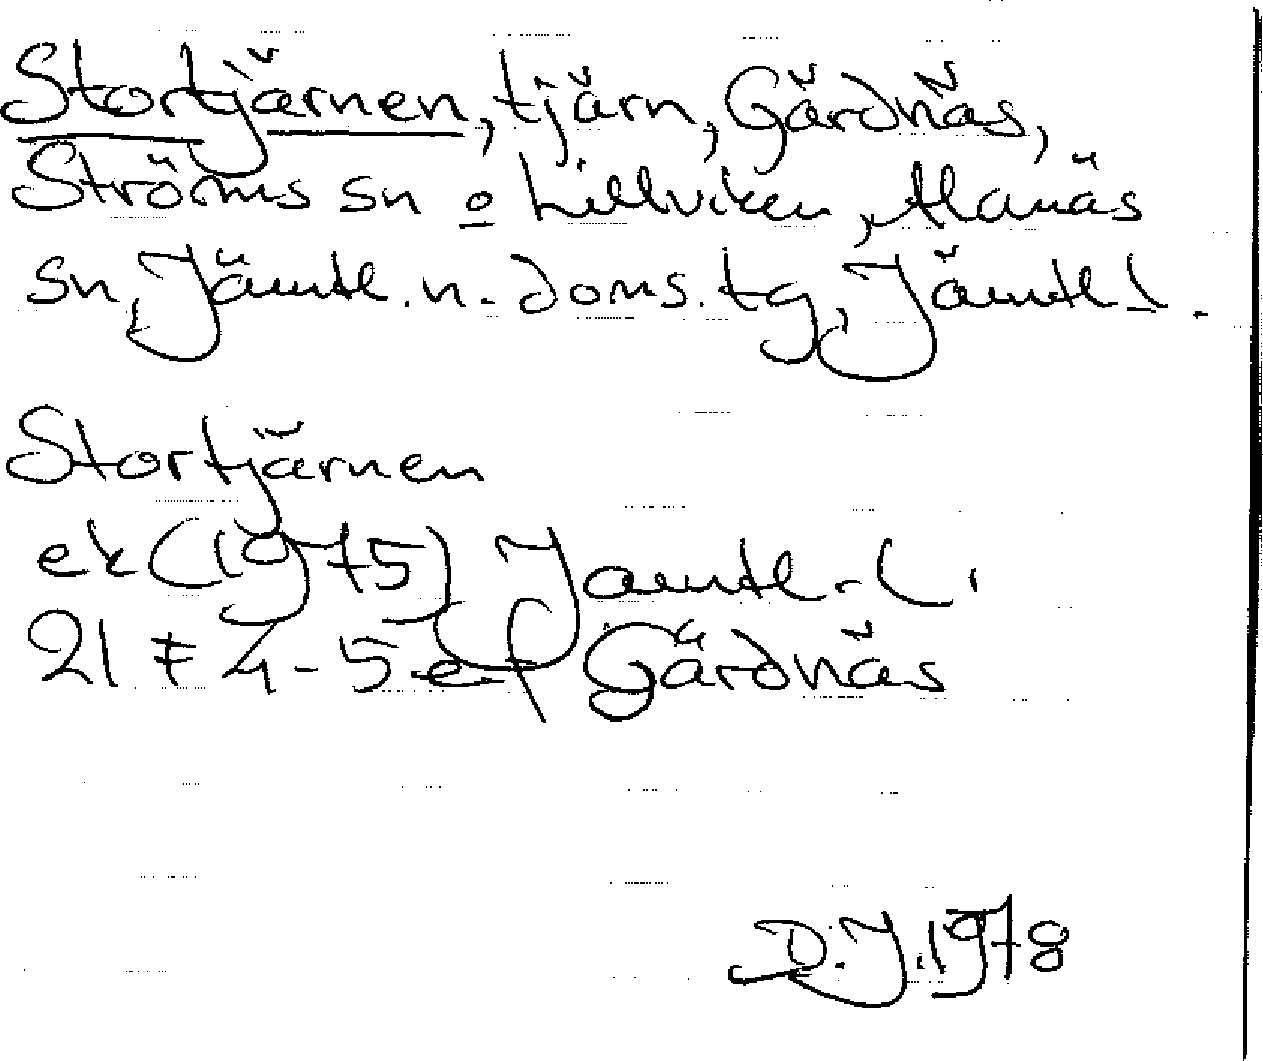 Stortjärnen, tjärn, Gärdnäs,
Ströms sn o Lillviken, Alanäs
sn, Jämtl. n. doms. tg, Jämtl l.
Stortjärnen
ek (1975) Jämtl. l.
21 F 4-5 ef Gärdnäs
D.J. 1978